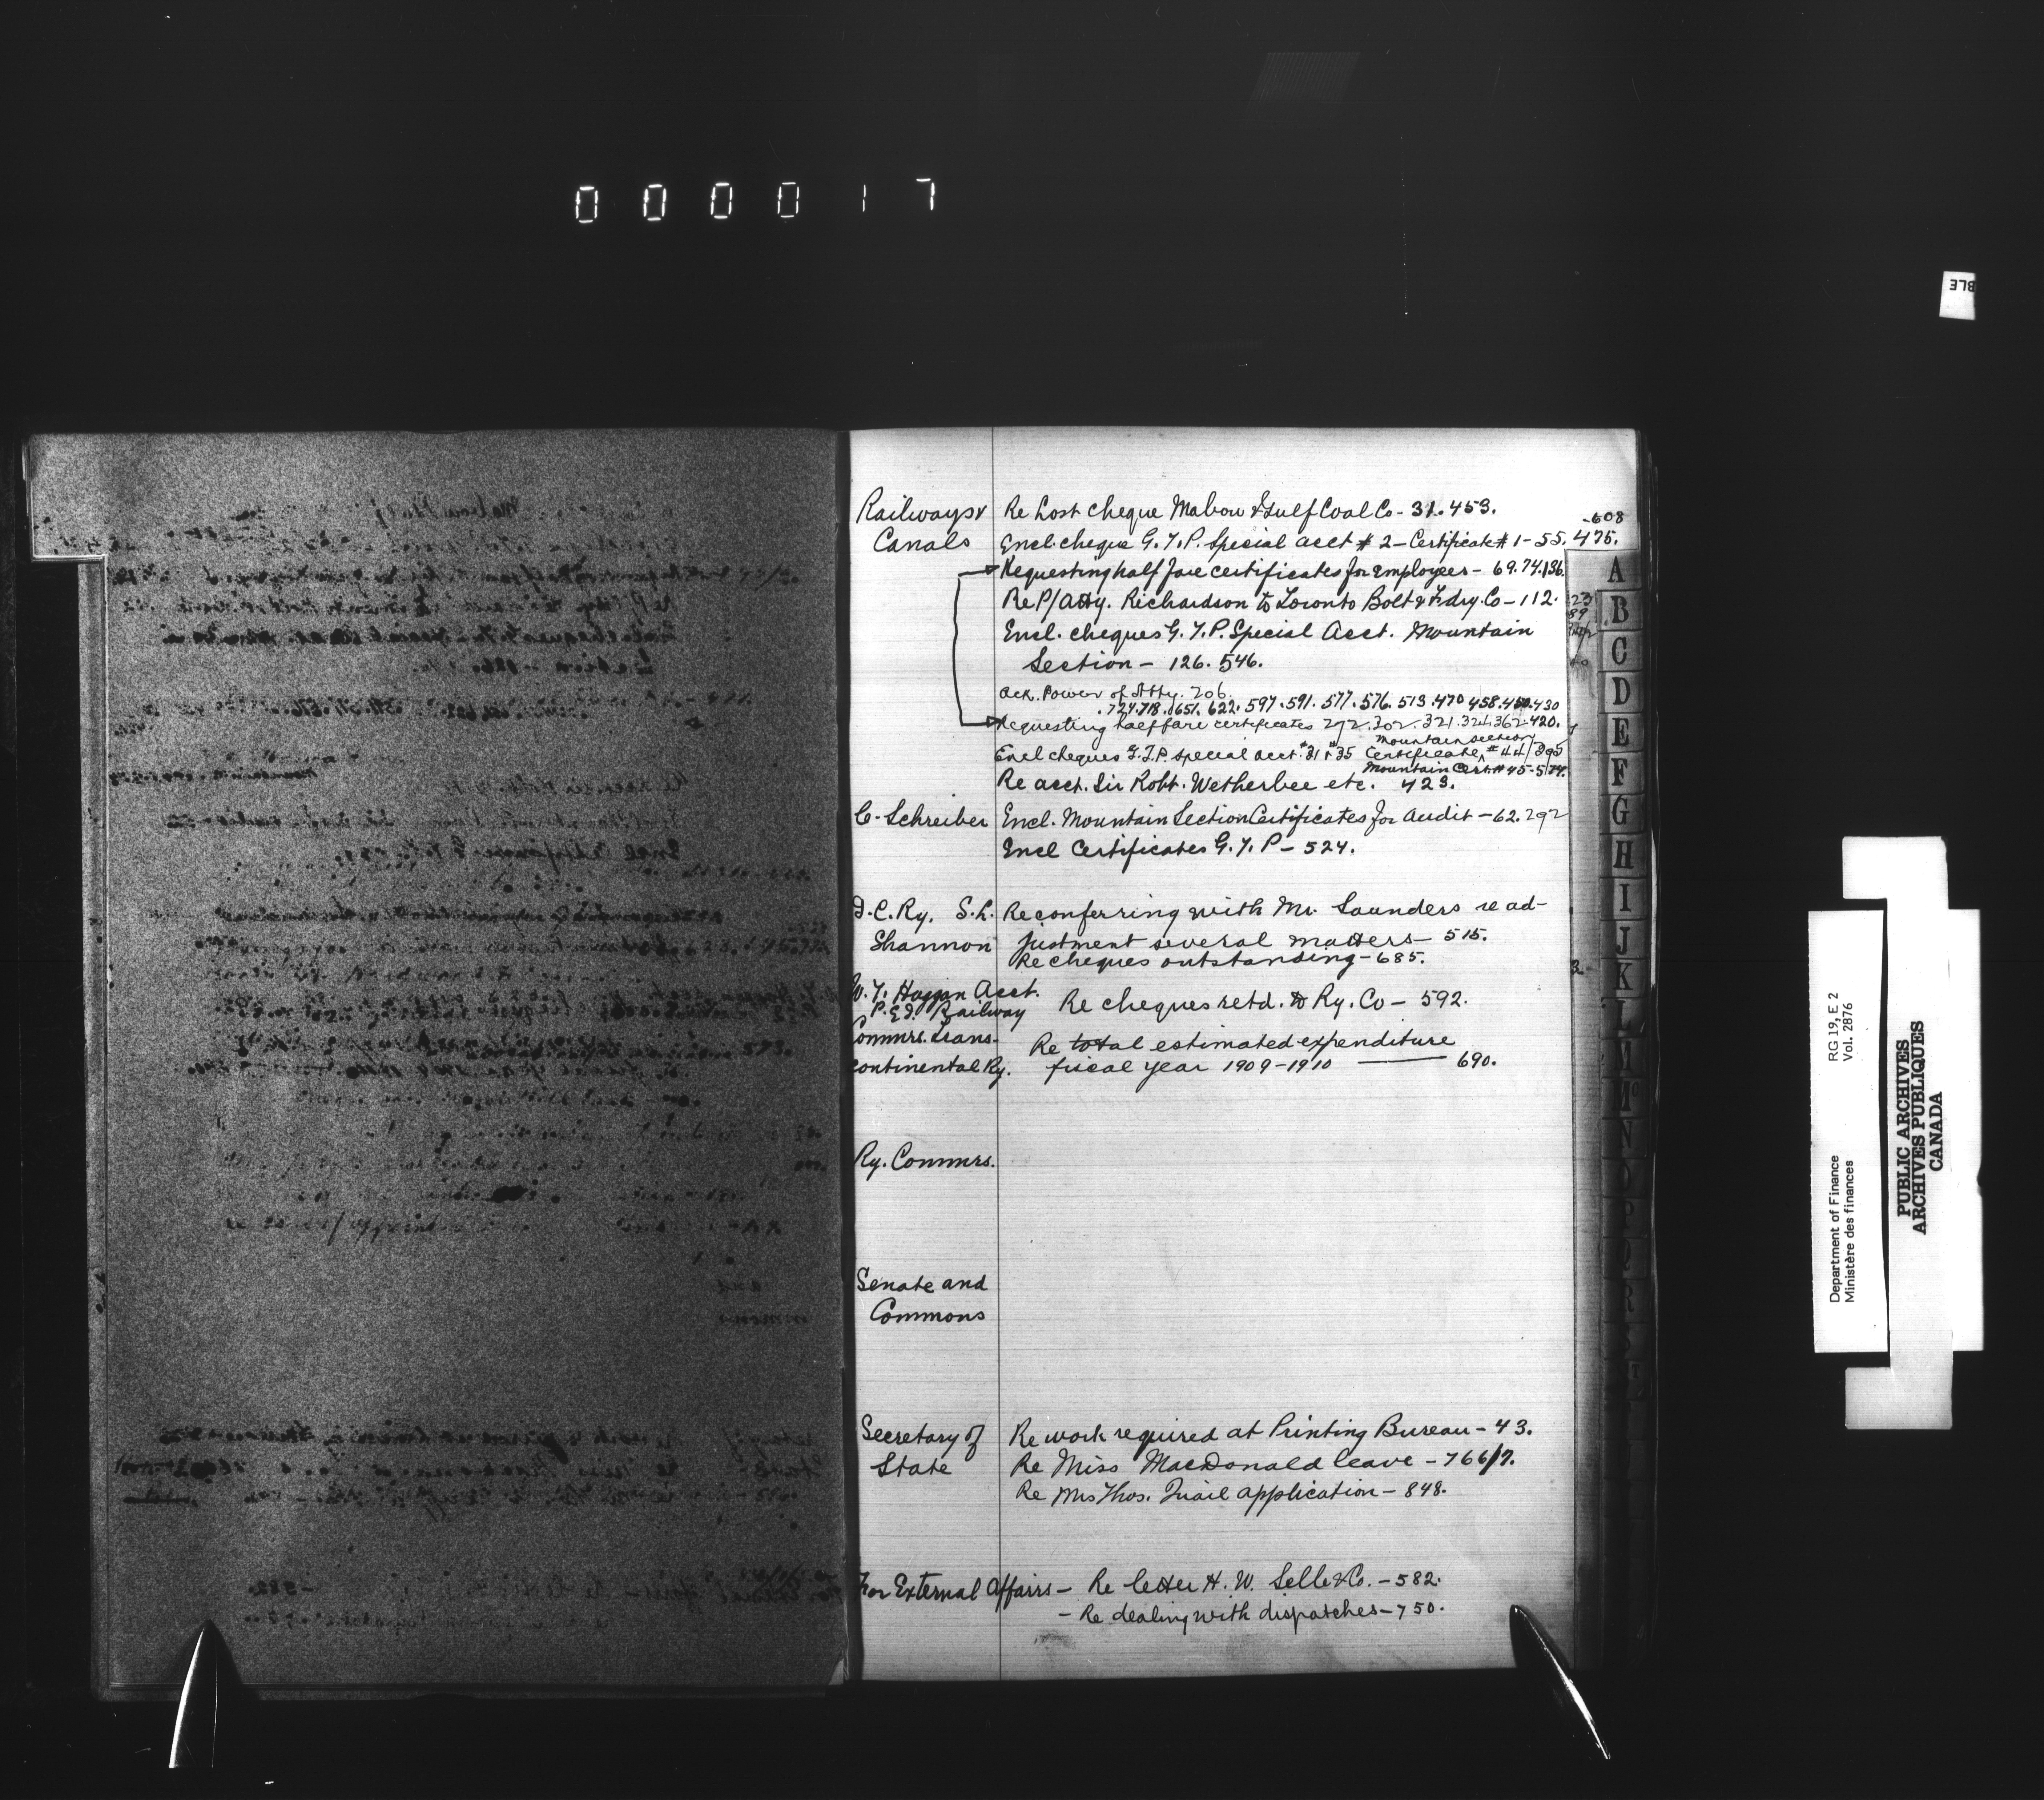 000017
BLE
Railways & Re Lost cheque Mabou & Gulf Coal Co - 31. 453.
-608
Canals Encl. cheque G.T.P. Special acct # 2 - Certificate # 1 - 55. 475.
Requesting half fare certificates for employees - 69. 74. 136.
Re P/Atty. Richardson to Toronto Bolt & Fdry. Co - 112.
Encl. cheques G.T.P. Special Acct. Mountain
Section - 126. 546.
Ack. Power of Atty. 206.
. 724. 718. 651. 622. 597. 591. 577. 576. 513. 470 458. 450. 430
Requesting half fare certificates 292. 302. 321. 324. 362 420.
Mountain Section
Encl cheques G.T.P. special acct. #31 & #35 Certificate # 44/392
Mountain Cert. # 45-574.
Re acct. Sir Robt. Wetherbee etc. 423.
C. Schreiber Encl. Mountain Section Certificates for Audit - 62. 292
Encl Certificates G.T.P - 524.
I.C.Ry. S.L. Re conferring with Mr. Saunders re ad-
Shannon justment several matters - 515.
Re cheques outstanding - 685.
W.T. Huggan Acct.
P.E.I. Railway Re cheques retd. to Ry. Co - 592.
Commrs. Trans- Re total estimated expenditure
continental Ry. fiscal year 1909-1910 — 690.
Ry. Commrs.
Senate and
Commons
Secretary of Re work required at Printing Bureau - 43.
State Re Miss MacDonald leave - 766/7.
Re Mrs Thos. Quail application - 848.
For External Affairs - Re letter H. W. Selle & Co. - 582.
- Re dealing with dispatches - 750.
A
B
C
D
E
F
G
H
I
J
K
L
M
Mc
N
O
P
Q
R
S
T
Department of Finance RG 19, E 2
Ministère des finances Vol. 2876
PUBLIC ARCHIVES
ARCHIVES PUBLIQUES
CANADA